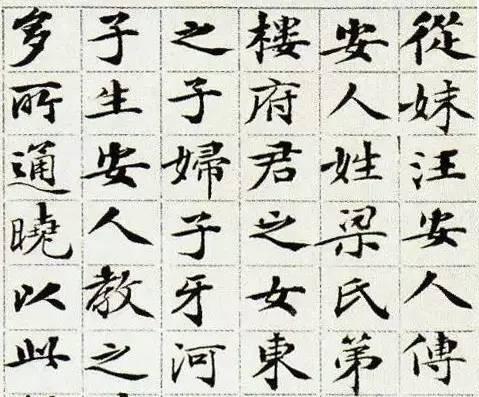 從妹汪安人傳
安人姓梁氏第
樓府君之女東
之子婦子牙河
子生安人教之
多所通曉以此